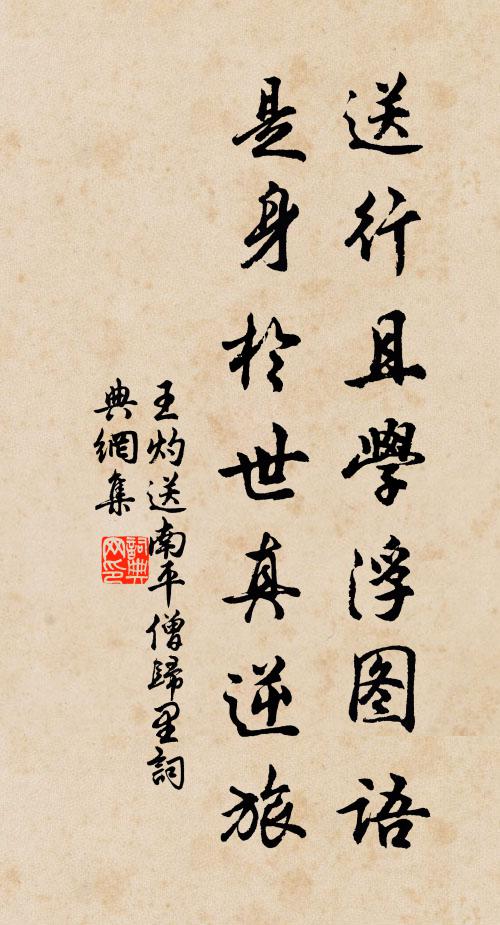 送行且學浮图語
是身於世真逆旅
王灼送南平僧歸里詞
典網集
詞典
网印